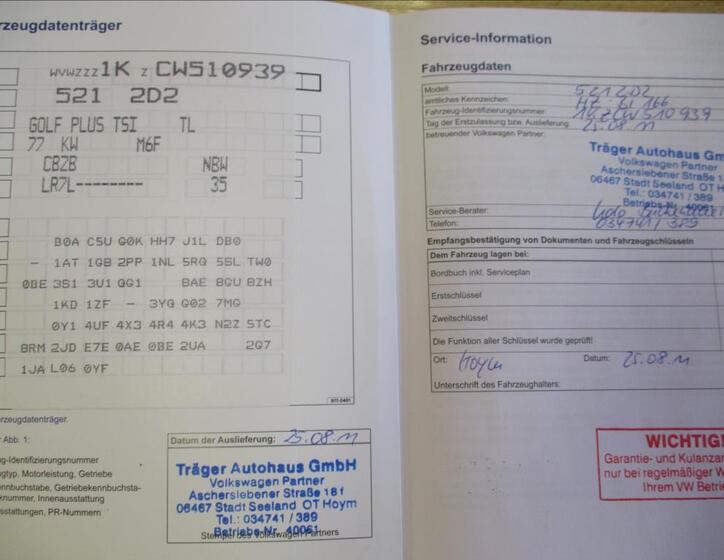 rzeugdatenträger
WVWZZZ1K Z CW510939
521 2D2
GOLF PLUS TSI TL
77 KW M6F
CBZB NBW
LR7L-------- 35
B0A C5U G0K HH7 J1L DB0
- 1AT 1G8 2PP 1NL 5RQ 5SL TW0
0BE 3S1 3U1 QG1 BAE 8GU 8ZH
1KD 1ZF - 3YG G02 7MG
0Y1 4UF 4X3 4R4 4K3 N2Z 5TC
8RM 2JD E7E 0AE 0BE 2UA 2G7
1JA L06 0YF
rzeugdatenträger.
Abb. 1:
g-Identifizierungsnummer
gtyp, Motorleistung, Getriebe
ennbuchstabe, Getriebekennbuchsta-
knummer, Innenausstattung
sstattungen, PR-Nummern
Datum der Auslieferung: 25.08.11
Träger Autohaus GmbH
Volkswagen Partner
Ascherslebener Straße 18f
06467 Stadt Seeland OT Hoym
Tel.: 034741 / 389
Betriebs-Nr. 40061
Stempel des Volkswagen Partners
Service-Information
Fahrzeugdaten
Modell: 521 2D2
amtliches Kennzeichen: 166
Fahrzeug-Identifizierungsnummer: 1KZCW510939
Tag der Erstzulassung bzw. Auslieferung: 25.08.11
betreuender Volkswagen Partner:
Träger Autohaus Gm
Volkswagen Partner
Ascherslebener Straße 1
06467 Stadt Seeland OT
Tel.: 034741 / 389
Betriebs-Nr. 40061
Service-Berater:
Telefon: 034741 / 389
Empfangsbestätigung von Dokumenten und Fahrzeugschlüsseln
Dem Fahrzeug lagen bei:
Bordbuch inkl. Serviceplan
Erstschlüssel
Zweitschlüssel
Die Funktion aller Schlüssel wurde geprüft!
Ort: Hoym Datum: 25.08.11
Unterschrift des Fahrzeughalters:
WICHTIG!
Garantie- und Kulanza
nur bei regelmäßiger W
Ihrem VW Betrie